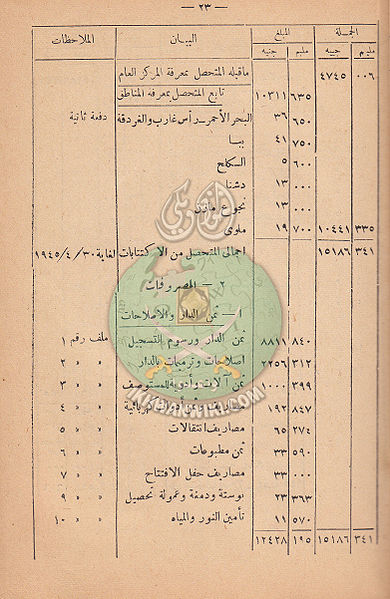 — ٢٣ —
الجملة المبلغ البيان الملاحظات
مليم جنيه مليم جنيه
٠٠٦ ٤٧٤٥ ماقبله المتحصل بمعرفة المركز العام
٦٣٥ ١٠٣١١ تابع المتحصل بمعرفة المناطق
٦٥٠ ٣٦ البحر الأحمر — رأس غارب والغردقة دفعة ثانية
٧٥٠ ٤١ ببا
٦٠٠ ٥
٠٠٠ ١٣ دشنا
٠٠٠ ١٣ نجوع مازن
٣٣٥ ١٠٤٤١ ٧٠٠ ١٩ ملوى
٣٤١ ١٥١٨٦ اجمالى المتحصل من الاكتتابات لغاية ١٩٤٥/٤/٣٠
٢ — المصروفات
ا — ثمن الدار والاصلاحات
٨٤٠ ٨٨١١ ثمن الدار ورسوم التسجيل ملف رقم ١
٣١٢ ٢٢٥٦ اصلاحات وترميمات بالدار » » ٢
٣٩٩ ١٠٠٠ ثمن آلات وأدوية للمستوصف » » ٣
٨٤٧ ١٩٢ » » ٤
٢٧٤ ٦٥ مصاريف انتقالات » » ٥
٥٩٠ ٣٣ ثمن مطبوعات » » ٦
٠٠٠ ٣٣ مصاريف حفل الافتتاح » » ٧
٣٦٣ ٢٣ بوستة ودمغة وعمولة تحصيل » » ٩
٥٧٠ ١١ تأمين النور والمياه » » ١٠
٣٤١ ١٥١٨٦ ١٩٥ ١٢٤٢٨
IKHWANWIKI.COM